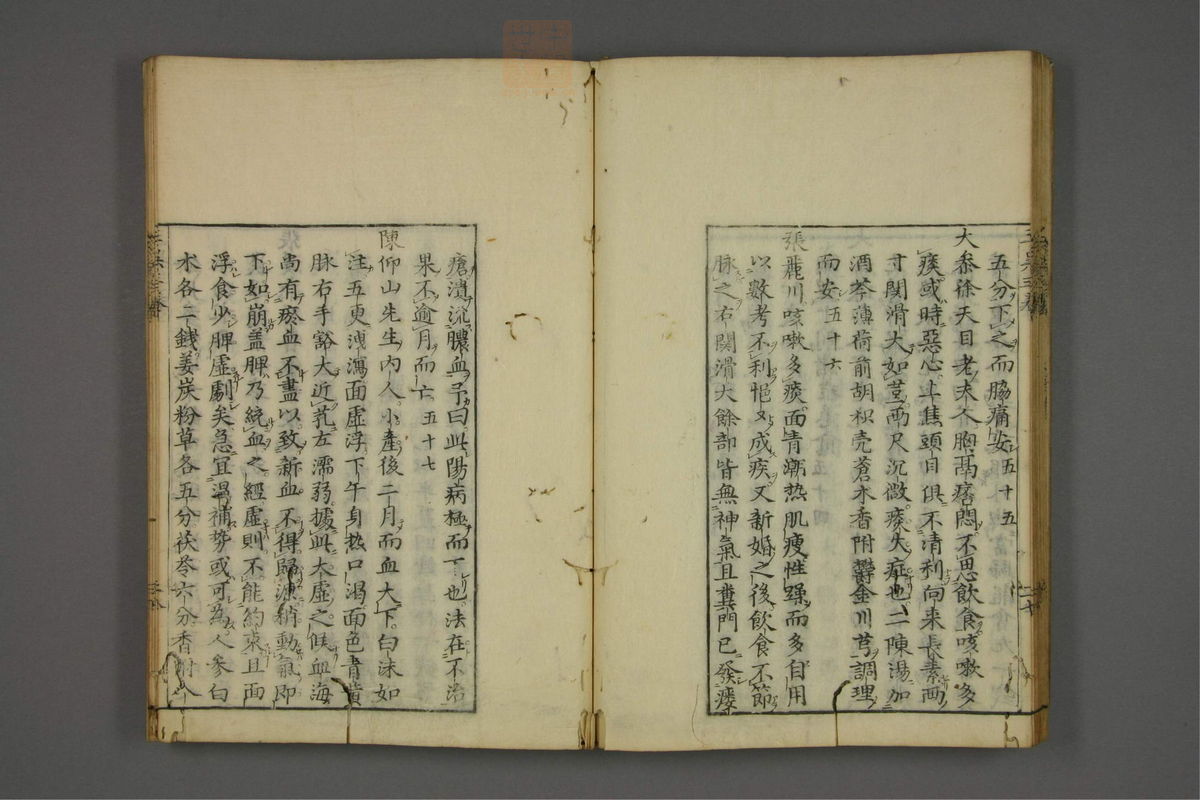 五分下之而脇痛安五十五
大參徐天目老夫人胸膈痞悶不思飲食咳嗽多
痰或時惡心斗焦頭目俱不清利向來長素两
寸関滑大如荳两尺沉微痰火症也二陳湯加
酒芩薄荷前胡枳壳蒼朮香附鬱金川芎調理
而安五十六
張麗川咳嗽多痰面青潮热肌瘦性躁而多自用
以數考不利悒又成疾又新婚之後飲食不節
脉之右関滑大餘部皆無神氣且糞門已發瘻
瘡潰沉膿血予曰此陽病極而下也法在不治
果不逾月而亡五十七
陳仰山先生內人小產後二月而血大下白沫如
注五更洩瀉面虛浮下午身热口渴面色青黄
脉右手豁大近芤左濡弱據此太虛之候血海
尚有瘀血不盡以致新血不得歸源稍動氣即
下如崩盖脾乃統血之經虛則不能約束且面
浮食少脾虛劇矣急宜温補勢或可為人參白
朮各二錢姜炭粉草各五分茯苓六分香附八